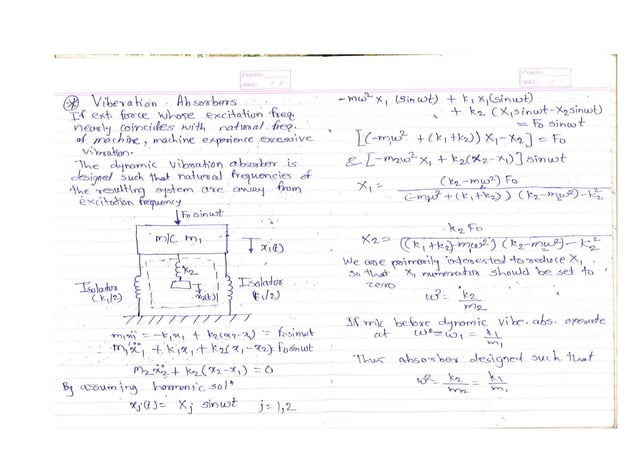 Page No.
Date: / /
Viberation Absorbers
If ext. force whose excitation freq
nearly coincides with natural freq.
of machine, machine exprience excessive
vibration.
The dynamic vibration absorber is
designed such that natural frequencies of
the resulting system are away from
excitation frequency
F₀ sinωt
m/c m₁
x₁(t)
k₂
x₂(t)
Isolator
(k₁/2)
Isolator
(k₁/2)
m₁ẍ₁ = -k₁x₁ + k₂(x₂-x₁) = F₀sinωt
m₁ẍ₁ + k₁x₁ + k₂(x₁-x₂) = F₀sinωt
m₂ẍ₂ + k₂(x₂-x₁) = 0
By assuming harmonic solⁿ
xj(t) = Xj sinωt j=1,2
Page No.
Date: / /
-mω²X₁ (sinωt) + k₁X₁(sinωt)
+ k₂ (X₁sinωt - X₂sinωt)
= F₀ sinωt
[(-mω² + (k₁+k₂)) X₁ - X₂] = F₀
& [-m₂ω² X₁ + k₂(X₂-X₁)] sinωt
X₁ = (k₂-mω²) F₀
(-mω² + (k₁+k₂)) (k₂-mω²) - k₂²
X₂ = k₂ F₀
((k₁+k₂)-m₁ω²) (k₂-mω²) - k₂²
We are primarily interested to reduce X₁
so that X₁ numerator should be set to
zero
ω² = k₂/m₂
If m/c before dynamic vibe. abs. operate
at ω² = ω₁ = k₁/m₁
Thus absorber designed such that
ω² = k₂/m₂ = k₁/m₁